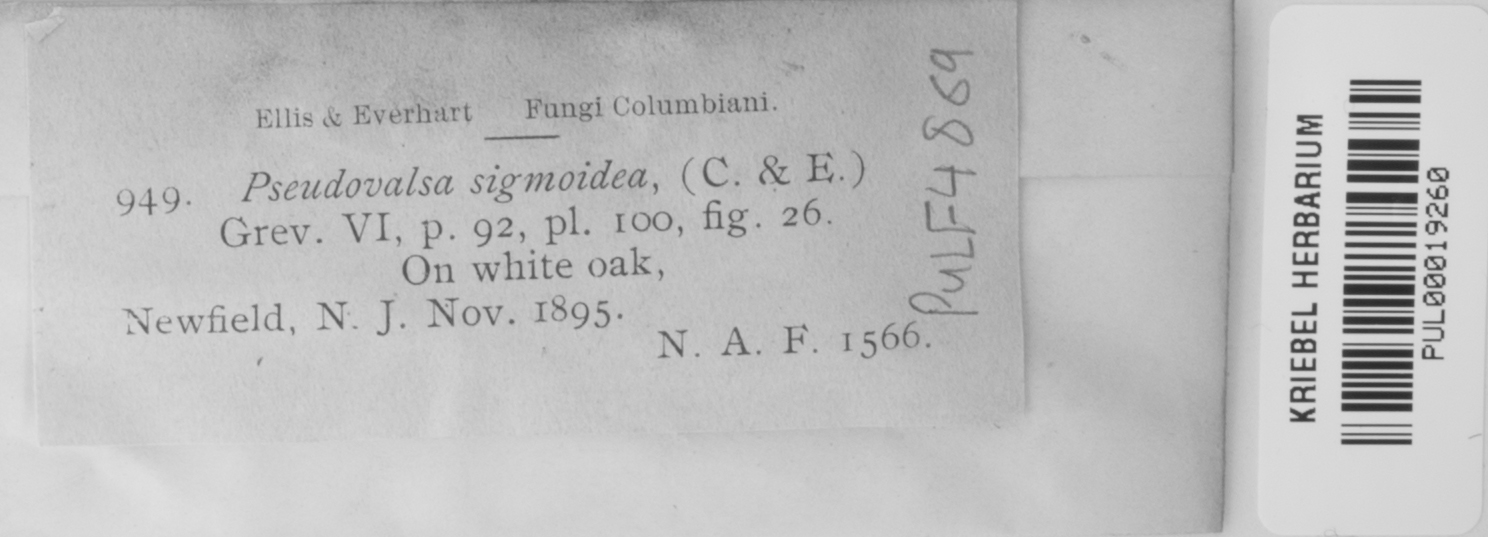 Ellis & Everhart Fungi Columbiani.
949. Pseudovalsa sigmoidea, (C. & E.)
Grev. VI, p. 92, pl. 100, fig. 26.
On white oak,
Newfield, N. J. Nov. 1895.
N. A. F. 1566.
PULF4869
KRIEBEL HERBARIUM
PUL00019260